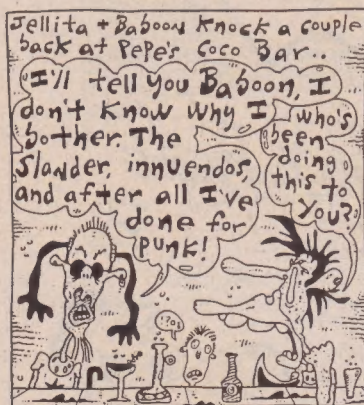 Jellita + Baboon Knock a couple
back at Pepe's Coco Bar..
I'll tell you Baboon, I
don't know why I
bother. The
slander, innuendos,
and after all I've
done for
punk!
who's
been
doing
this to
you?